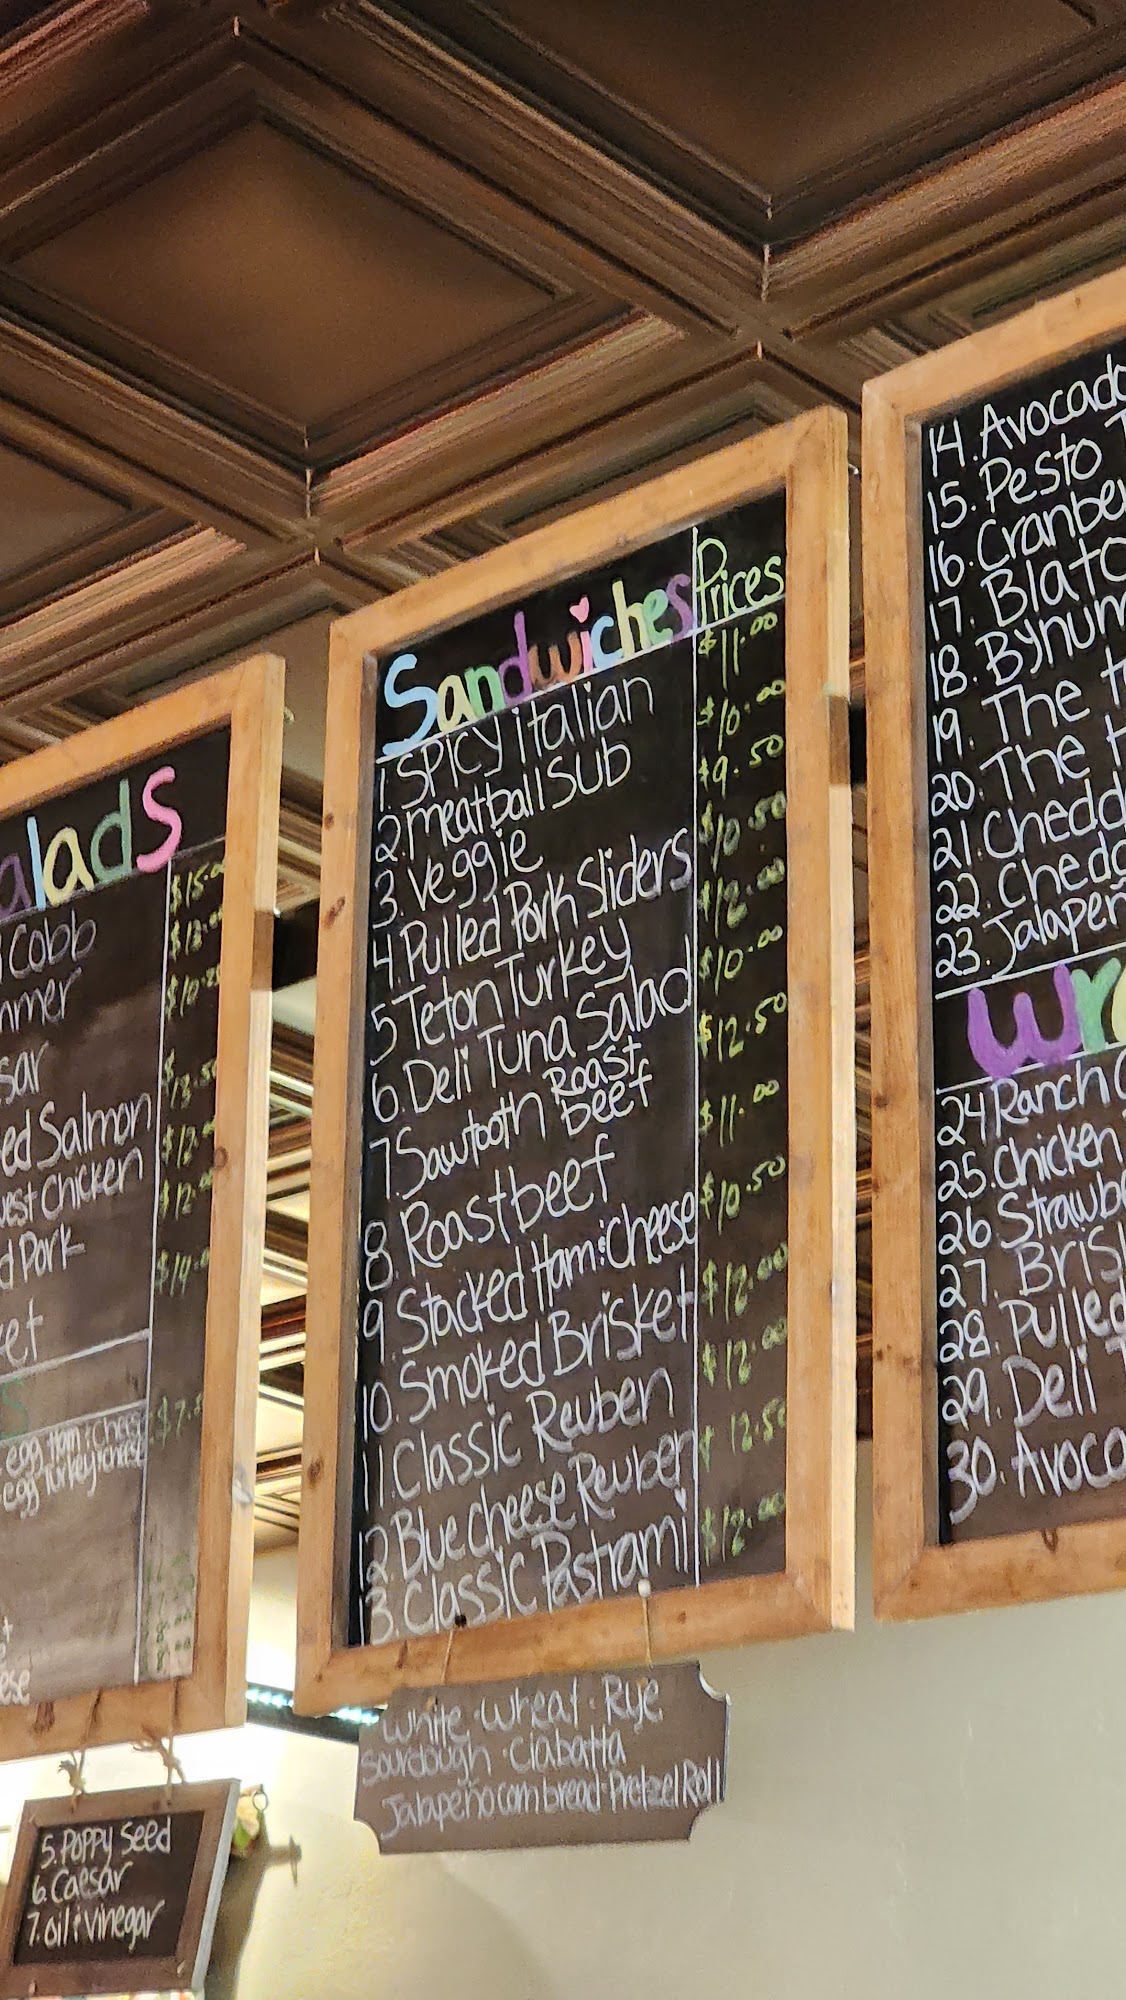 alads
$15.00
Cobb
$12.00
mmer
$10.25
sar
$13.50
ed Salmon
$12.00
est Chicken
$12.00
d Pork
$14.00
ket
s
egg Ham & Chees
$7.5
egg Turkey & cheese
ese
5. Poppy Seed
6. Caesar
7. oil & vinegar
Sandwiches Prices
1. Spicy italian $11.00
2. meatball SUB $10.00
3. Veggie $9.50
4. Pulled Pork Sliders $10.50
5 Teton Turkey $12.00
6. Deli Tuna Salad $10.00
7. Sawtooth Roast beef $12.50
8. Roastbeef $11.00
9. Stacked Ham & Cheese $10.50
10. Smoked Brisket $12.00
11. Classic Reuben $12.00
12. Blue Cheese Reuben 12.50
13. Classic Pastrami $12.00
White · Wheat · Rye
Sourdough · Ciabatta
Jalapeño cornbread · Pretzel Roll
14. Avocado
15. Pesto T
16. Cranber
17. Blato
18. Bynum
19. The t
20. The H
21. Chedd
22. Chedd
23. Jalapeñ
wra
24 Ranch C
25. Chicken
26 Strawbe
27. Bris
28. Pulled
29. Deli T
30. Avoca